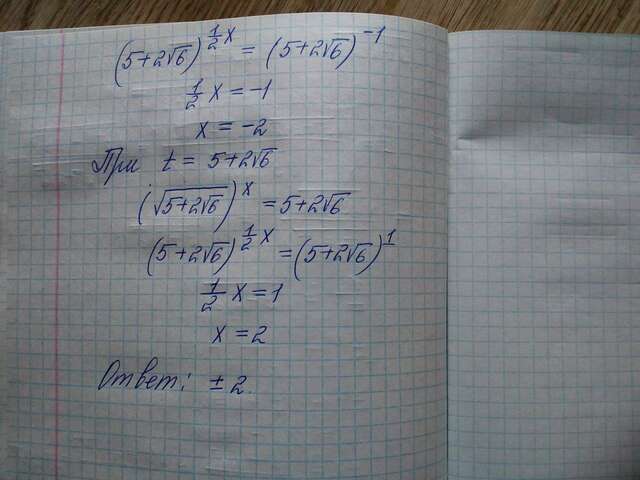 (5+2√6)^{1/2 x} = (5+2√6)^{-1}
1/2 x = -1
x = -2
При t = 5+2√6
(√(5+2√6))^x = 5+2√6
(5+2√6)^{1/2 x} = (5+2√6)^1
1/2 x = 1
x = 2
Ответ: ± 2.